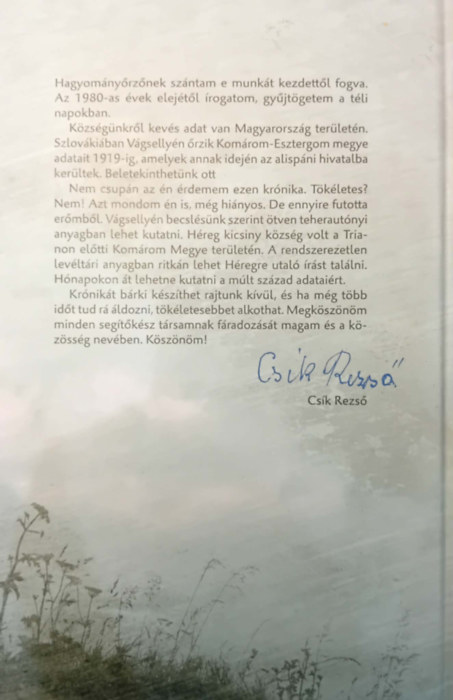 Hagyományőrzőnek szántam e munkát kezdettől fogva.
Az 1980-as évek elejétől írogatom, gyűjtögetem a téli
napokban.
Községünkről kevés adat van Magyarország területén.
Szlovákiában Vágsellyén őrzik Komárom-Esztergom megye
adatait 1919-ig, amelyek annak idején az alispáni hivatalba
kerültek. Beletekinthetünk ott
Nem csupán az én érdemem ezen krónika. Tökéletes?
Nem! Azt mondom én is, még hiányos. De ennyire futotta
erőmből. Vágsellyén becslésünk szerint ötven teherautónyi
anyagban lehet kutatni. Héreg kicsiny község volt a Tria-
non előtti Komárom Megye területén. A rendszerezetlen
levéltári anyagban ritkán lehet Héregre utaló írást találni.
Hónapokon át lehetne kutatni a múlt század adataiért.
Krónikát bárki készíthet rajtunk kívül, és ha még több
időt tud rá áldozni, tökéletesebbet alkothat. Megköszönöm
minden segítőkész társamnak fáradozását magam és a kö-
zösség nevében. Köszönöm!
Csík Rezső
Csík Rezső